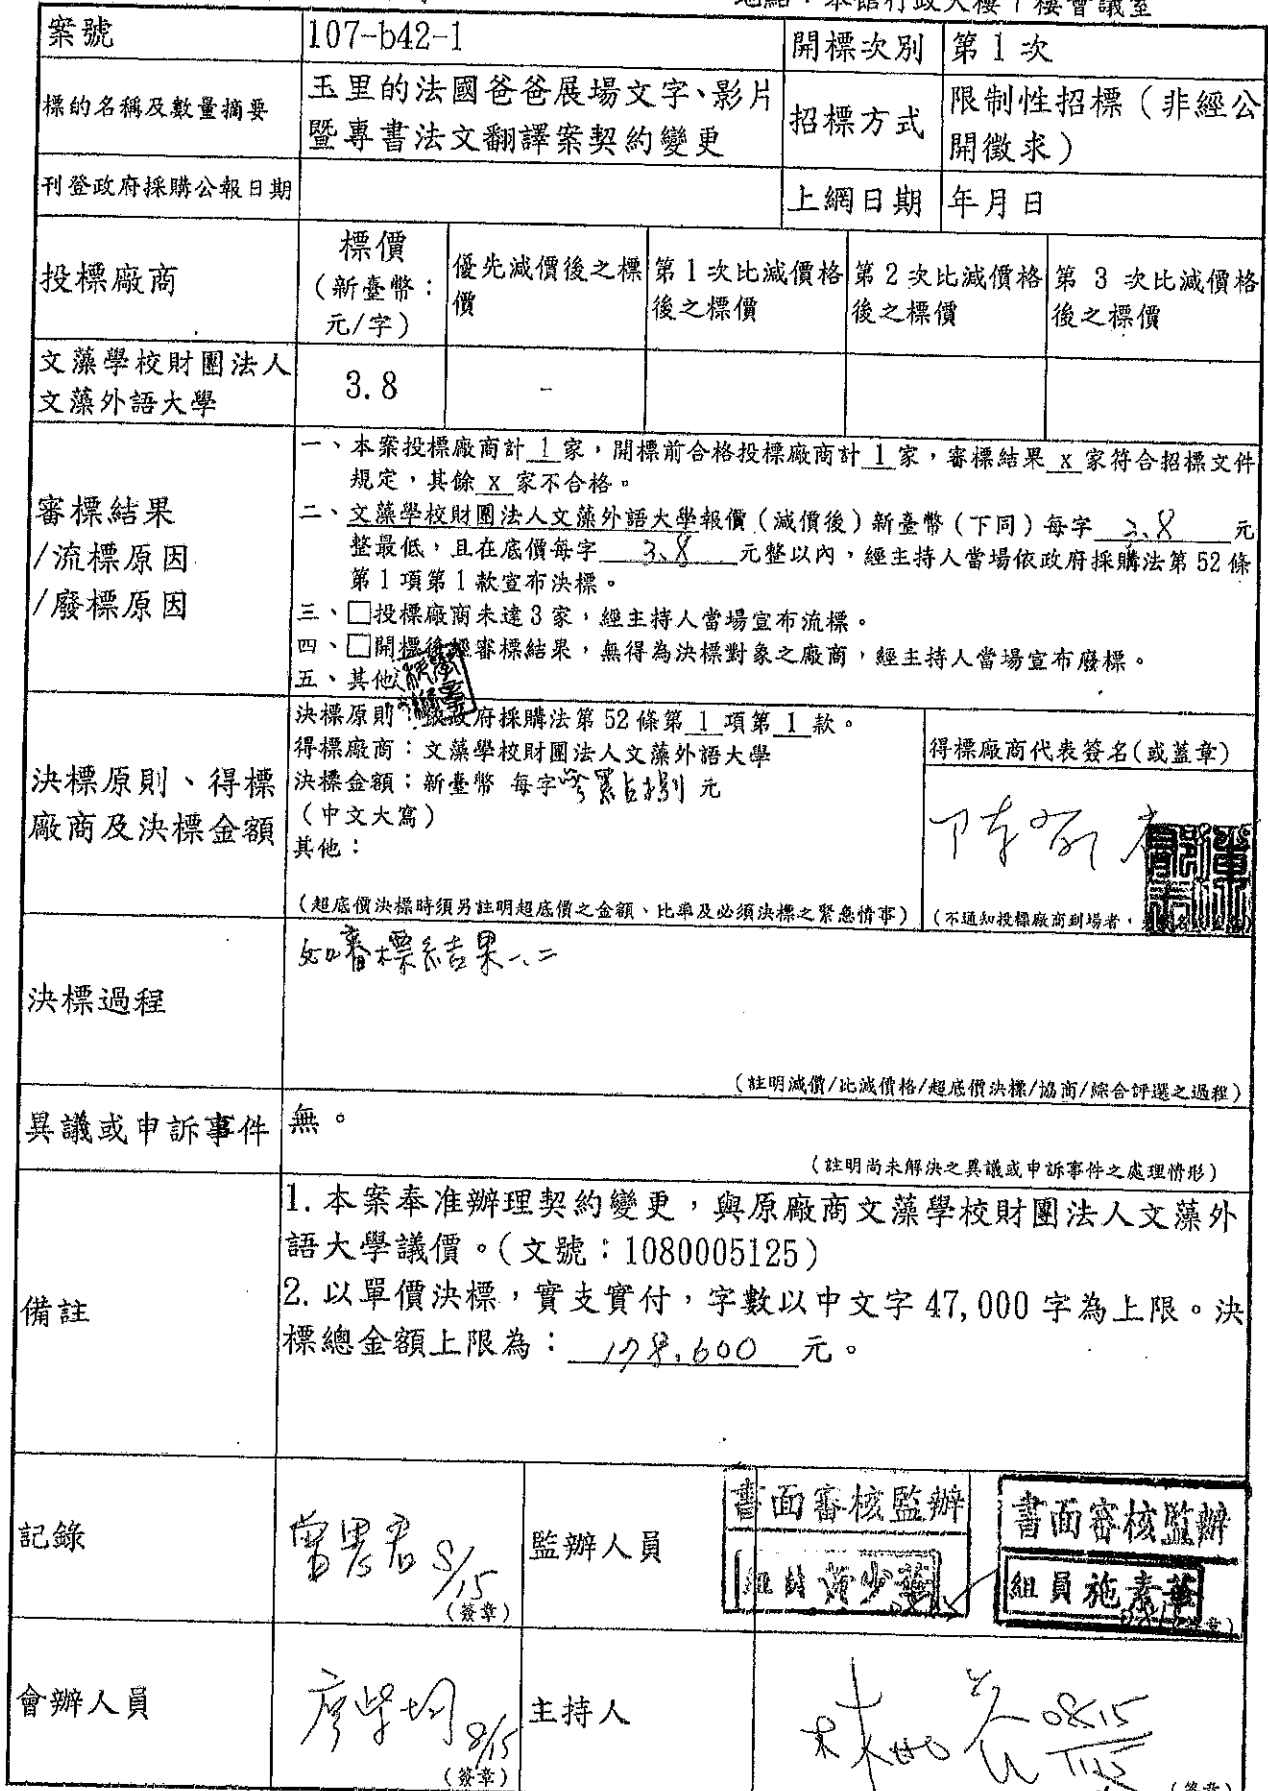 地點：本館行政大樓1樓會議室
案號 107-b42-1 開標次別 第1次
標的名稱及數量摘要 玉里的法國爸爸展場文字、影片
暨專書法文翻譯案契約變更
招標方式 限制性招標（非經公
開徵求）
刊登政府採購公報日期 上網日期 年月日
投標廠商
標價
（新臺幣：
元/字）
優先減價後之標
價
第1次比減價格
後之標價
第2次比減價格
後之標價
第 3 次比減價格
後之標價
文藻學校財團法人
文藻外語大學
3.8 -
審標結果
/流標原因
/廢標原因
一、本案投標廠商計 1 家，開標前合格投標廠商計 1 家，審標結果 x 家符合招標文件
規定，其餘 x 家不合格。
二、文藻學校財團法人文藻外語大學報價（減價後）新臺幣（下同）每字 3.8 元
整最低，且在底價每字 3.8 元整以內，經主持人當場依政府採購法第52條
第1項第1款宣布決標。
三、□投標廠商未達3家，經主持人當場宣布流標。
四、□開標後經審標結果，無得為決標對象之廠商，經主持人當場宣布廢標。
五、其他
決標原則、得標
廠商及決標金額
決標原則：依政府採購法第52條第 1 項第 1 款。
得標廠商：文藻學校財團法人文藻外語大學
決標金額：新臺幣 每字參點捌 元
（中文大寫）
其他：
（超底價決標時須另註明超底價之金額、比率及必須決標之緊急情事）
得標廠商代表簽名(或蓋章)
（不通知投標廠商到場者，
決標過程
如審標結果一、二
（註明減價/比減價格/超底價決標/協商/綜合評選之過程）
異議或申訴事件 無。
（註明尚未解決之異議或申訴事件之處理情形）
備註
1. 本案奉准辦理契約變更，與原廠商文藻學校財團法人文藻外
語大學議價。（文號：1080005125）
2. 以單價決標，實支實付，字數以中文字 47,000 字為上限。決
標總金額上限為： 178,600 元。
記錄
8/15
（簽章）
監辦人員
書面審核監辦
書面審核監辦
組員施素華
會辦人員
8/15
（簽章）
主持人
0815
1125
（簽章）